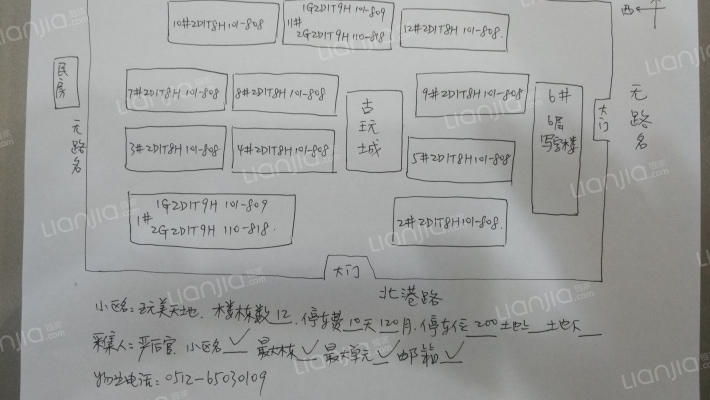 西
10#2D1T8H 101-808
1G2D1T9H 101-809
11#
2G2D1T9H 110-818
12#2D1T8H 101-808
民房
7#2D1T8H 101-808
8#2D1T8H 101-808
古玩城
9#2D1T8H 101-808
6#
6层
写字楼
大门
无路名
无路名
3#2D1T8H 101-808
4#2D1T8H 101-808
5#2D1T8H 101-808
1G2D1T9H 101-809
1#
2G2D1T9H 110-818.
2#2D1T8H 101-808.
大门
北港路
小区名:玩美天地. 楼栋数12. 停车费10天120月. 停车位200土地 土地
采集人:严后官. 小区名✓ 最大栋✓ 最大单元✓ 邮箱✓
物业电话:0512-65030109
Lianjia.com 链家